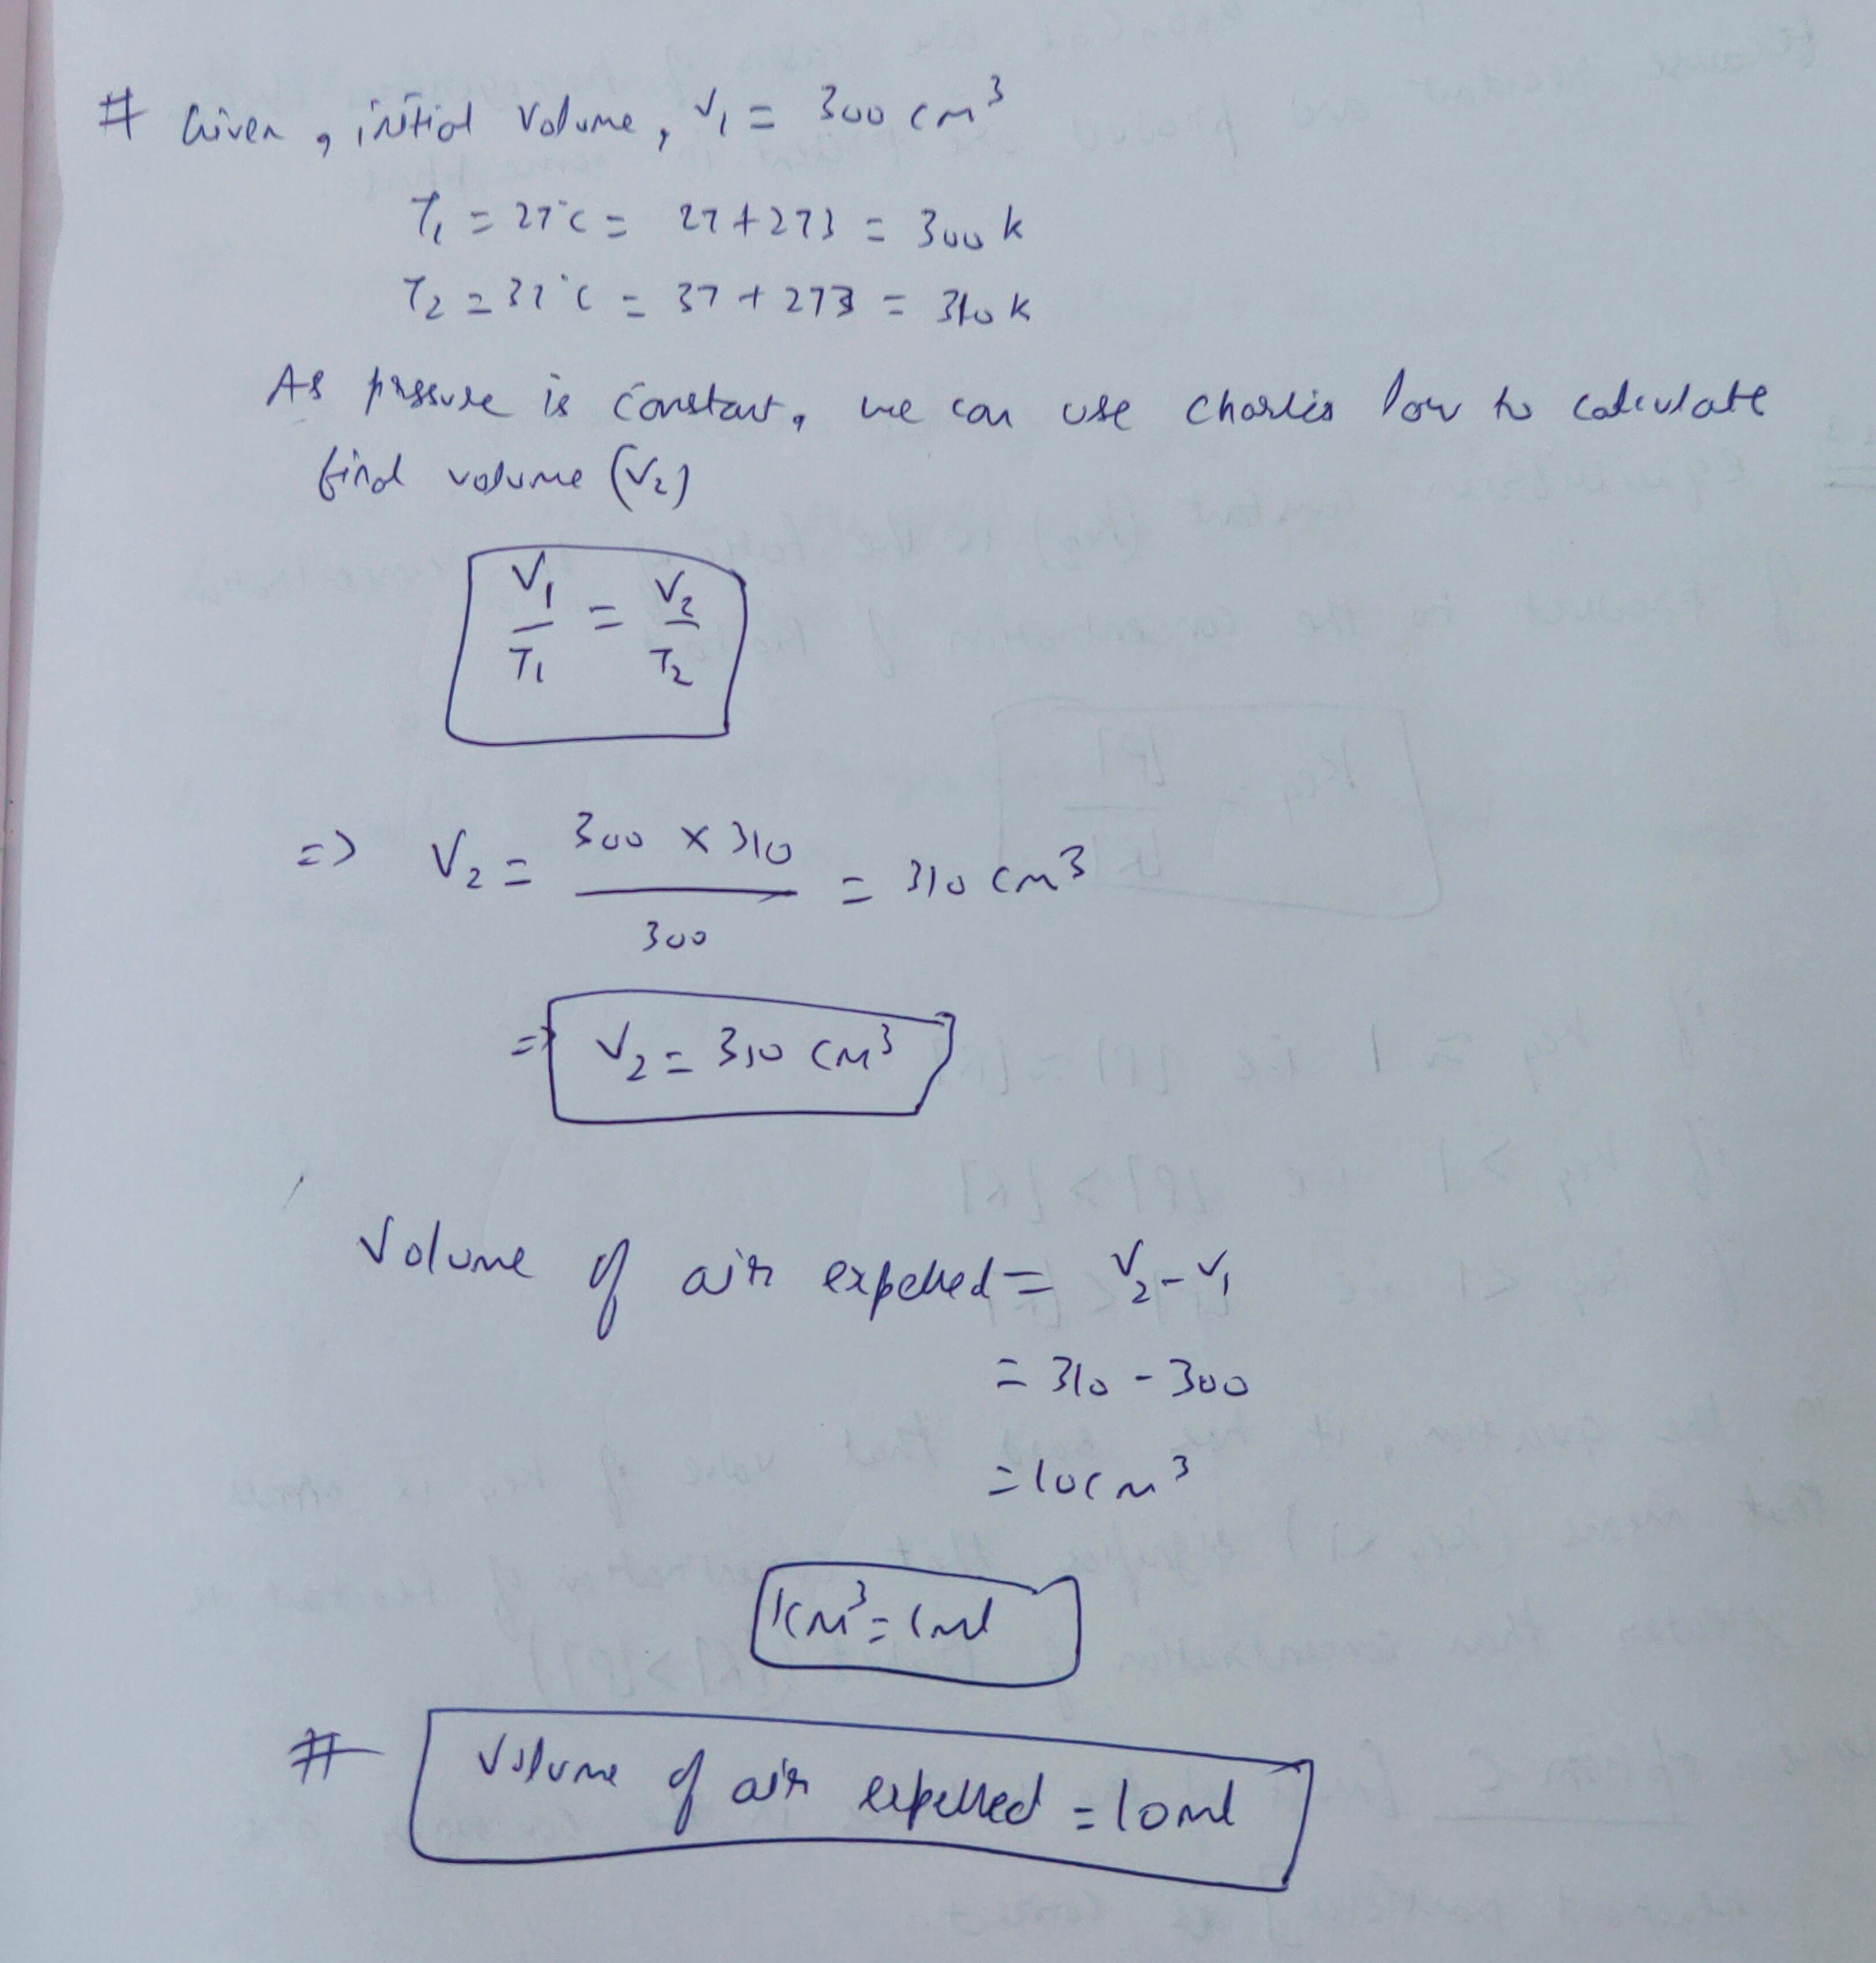 # Given, initial volume, V₁ = 300 cm³
T₁ = 27°C = 27 + 273 = 300 k
T₂ = 37°C = 37 + 273 = 310 k
As pressure is constant, we can use Charles law to calculate
final volume (V₂)
V₁/T₁ = V₂/T₂
=> V₂ = (300 × 310)/300 = 310 cm³
=> V₂ = 310 cm³
Volume of air expelled = V₂ - V₁
= 310 - 300
= 10 cm³
1cm³ = 1ml
# Volume of air expelled = 10ml